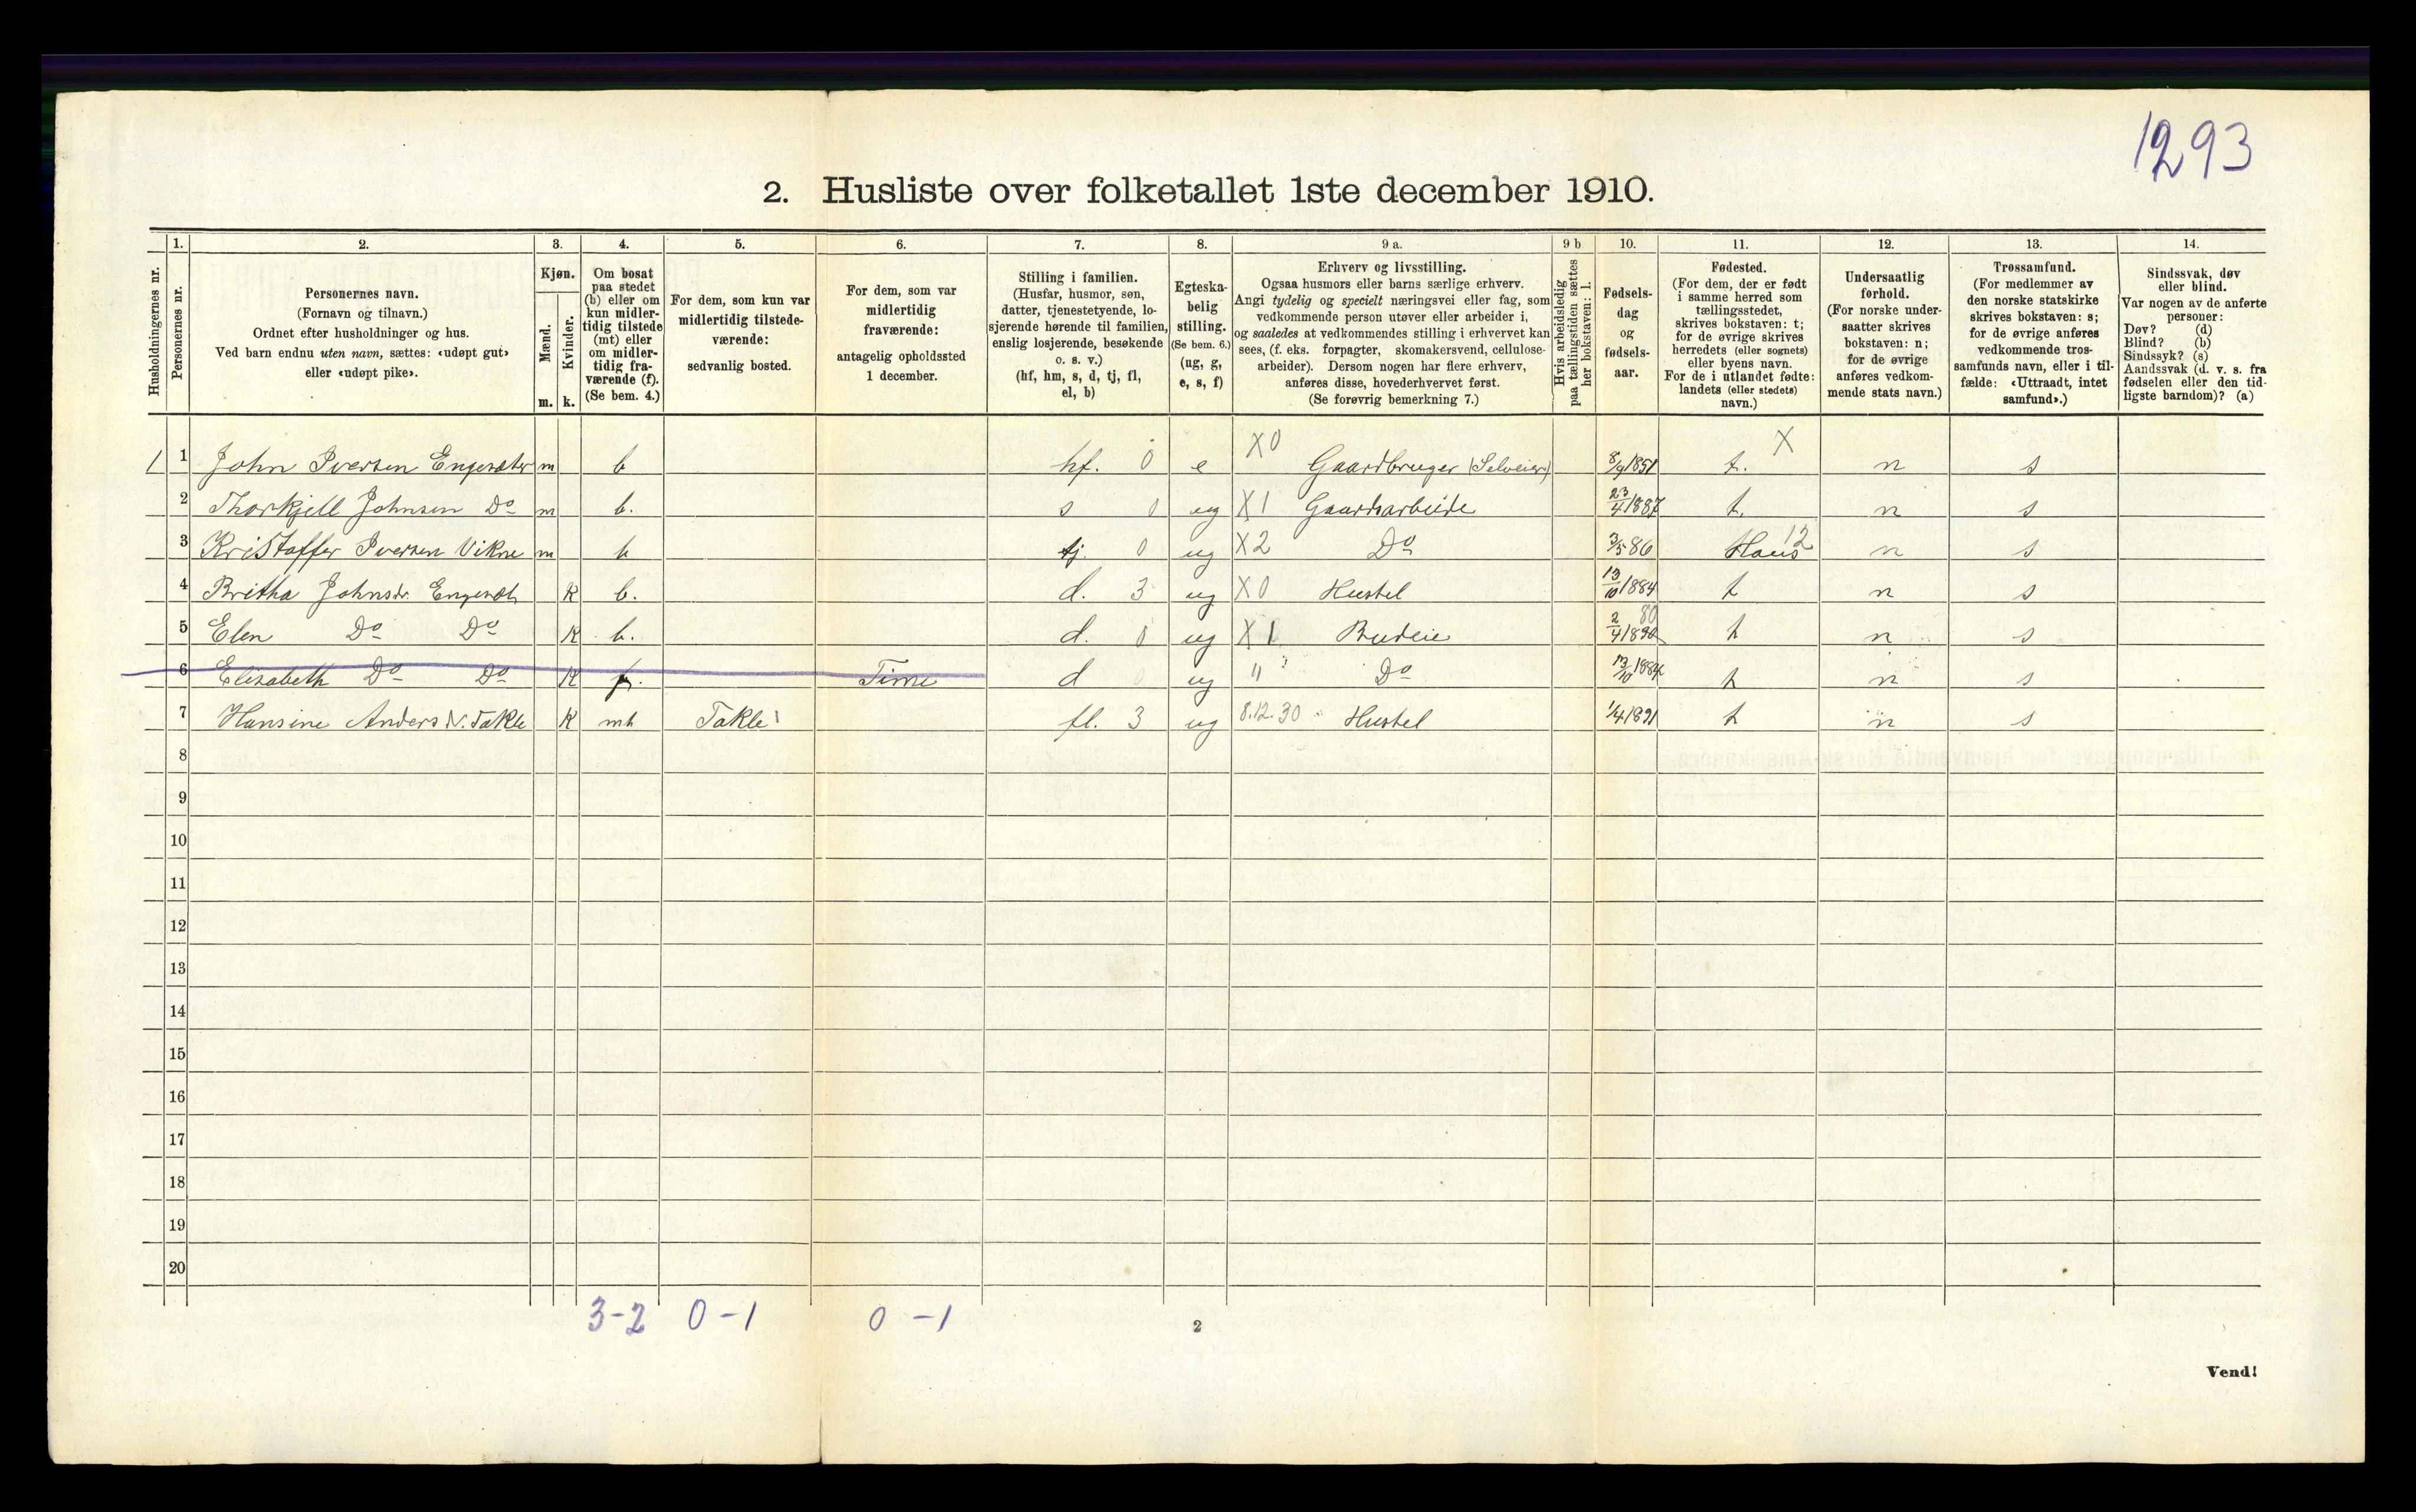 1293
2. Husliste over folketallet 1ste december 1910.
1. 2. 3. 4. 5. 6. 7. 8. 9 a. 9 b 10. 11. 12. 13. 14.
Husholdningernes nr.
Personernes nr.
Personernes navn.
(Fornavn og tilnavn.)
Ordnet efter husholdninger og hus.
Ved barn endnu uten navn, sættes: «udøpt gut»
eller «udøpt pike».
Kjøn.
Mænd.
m.
Kvinder.
k.
Om bosat
paa stedet
(b) eller om
kun midler-
tidig tilstede
(mt) eller
om midler-
tidig fra-
værende (f).
(Se bem. 4.)
For dem, som kun var
midlertidig tilstede-
værende:
sedvanlig bosted.
For dem, som var
midlertidig
fraværende:
antagelig opholdssted
1 december.
Stilling i familien.
(Husfar, husmor, søn,
datter, tjenestetyende, lo-
sjerende hørende til familien,
enslig losjerende, besøkende
o. s. v.)
(hf, hm, s, d, tj, fl,
el, b)
Egteska-
belig
stilling.
(Se bem. 6.)
(ug, g,
e, s, f)
Erhverv og livsstilling.
Ogsaa husmors eller barns særlige erhverv.
Angi tydelig og specielt næringsvei eller fag, som
vedkommende person utøver eller arbeider i,
og saaledes at vedkommendes stilling i erhvervet kan
sees, (f. eks. forpagter, skomakersvend, cellulose-
arbeider). Dersom nogen har flere erhverv,
anføres disse, hovederhvervet først.
(Se forøvrig bemerkning 7.)
Hvis arbeidsledig
paa tællingstiden sættes
her bokstaven: l.
Fødsels-
dag
og
fødsels-
aar.
Fødested.
(For dem, der er født
i samme herred som
tællingsstedet,
skrives bokstaven: t;
for de øvrige skrives
herredets (eller sognets)
eller byens navn.
For de i utlandet fødte:
landets (eller stedets)
navn.)
Undersaatlig
forhold.
(For norske under-
saatter skrives
bokstaven: n;
for de øvrige
anføres vedkom-
mende stats navn.)
Trossamfund.
(For medlemmer av
den norske statskirke
skrives bokstaven: s;
for de øvrige anføres
vedkommende tros-
samfunds navn, eller i til-
fælde: «Uttraadt, intet
samfund».)
Sindssvak, døv
eller blind.
Var nogen av de anførte
personer:
Døv? (d)
Blind? (b)
Sindssyk? (s)
Aandssvak (d. v. s. fra
fødselen eller den tid-
ligste barndom)? (a)
1 1 John Iversen Engesæter m b hf. 0 e X0 Gaardbruger (Selveier) 8/9 1851 t. X n s
2 Thorkjell Johnsen Do m b. s 0 ug X1 Gaardsarbeide 23/4 1887 t. n s
3 Kristoffer Iversen Vikne m b tj. 0 ug X2 Do 3/5 86 Haus 12 n s
4 Britha Johnsdr. Engesæt K b. d. 3 ug X0 Hustel 13/10 1884 t n s
5 Elen Do Do K b. d. 0 ug X1 Budeie 2/4 1890 80 t n s
6 Elisabeth Do Do K f. Time d 0 ug " Do 13/10 1884 t n s
7 Hansine Anders N. Takle K mt Takle fl. 3 ug 8.12.30 Hustel 1/4 1891 t n s
8
9
10
11
12
13
14
15
16
17
18
19
20
3-2 0-1 0-1
2
Vend!